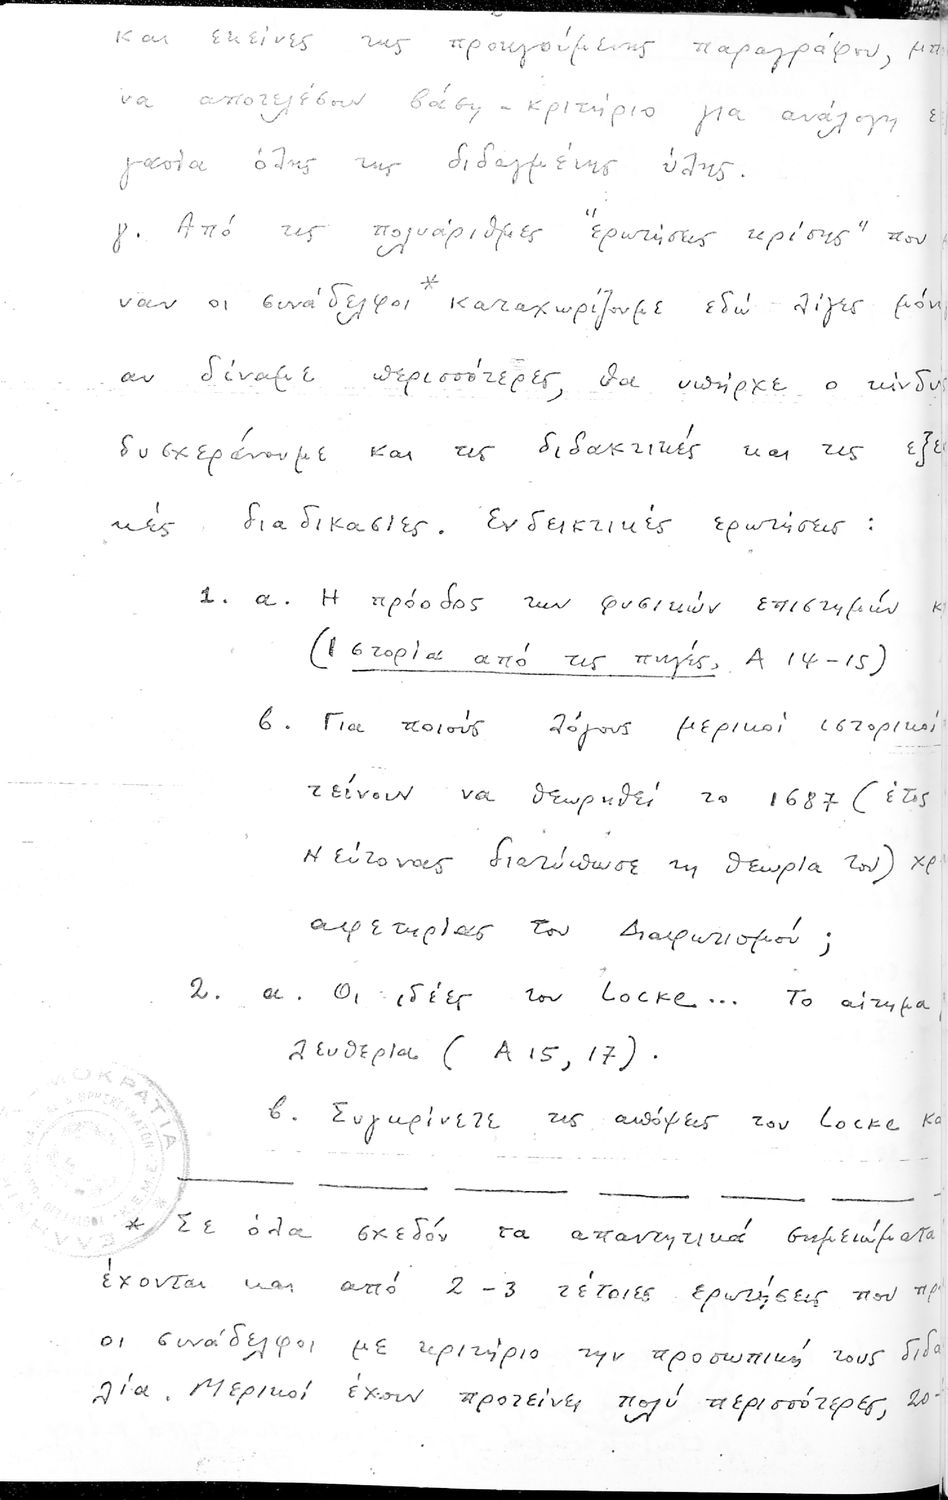 και εκείνες της προηγούμενης παραγράφου, μπ
να αποτελέσουν βάση - κριτήριο για ανάλογη ε
γασία όλης της διδαγμένης ύλης.
γ. Από τις πολυάριθμες "ερωτήσεις κρίσης" που
ναν οι συνάδελφοι * καταχωρίζουμε εδώ λίγες μόν
αν δίναμε περισσότερες, θα υπήρχε ο κίνδυ
δυσχεράνουμε και τις διδακτικές και τις εξε
κές διαδικασίες. Ενδεικτικές ερωτήσεις :
1. α. Η πρόοδος των φυσικών επιστημών κ
(Ιστορία από τις πηγές, Α 14-15)
β. Για ποιούς λόγους μερικοί ιστορικοί
τείνουν να θεωρηθεί το 1687 (έτος
Νεύτονας διατύπωσε τη θεωρία του) χρ
αφετηρίας του Διαφωτισμού ;
2. α. Οι ιδέες του Locke... Το αίτημα
λευθερία ( Α 15, 17) .
β. Συγκρίνετε τις απόψεις του Locke κα
* Σε όλα σχεδόν τα απαντητικά σημειώματα
έχονται και από 2-3 τέτοιες ερωτήσεις που πρ
οι συνάδελφοι με κριτήριο την προσωπική τους διδα
λία. Μερικοί έχουν προτείνει πολύ περισσότερες, 20-